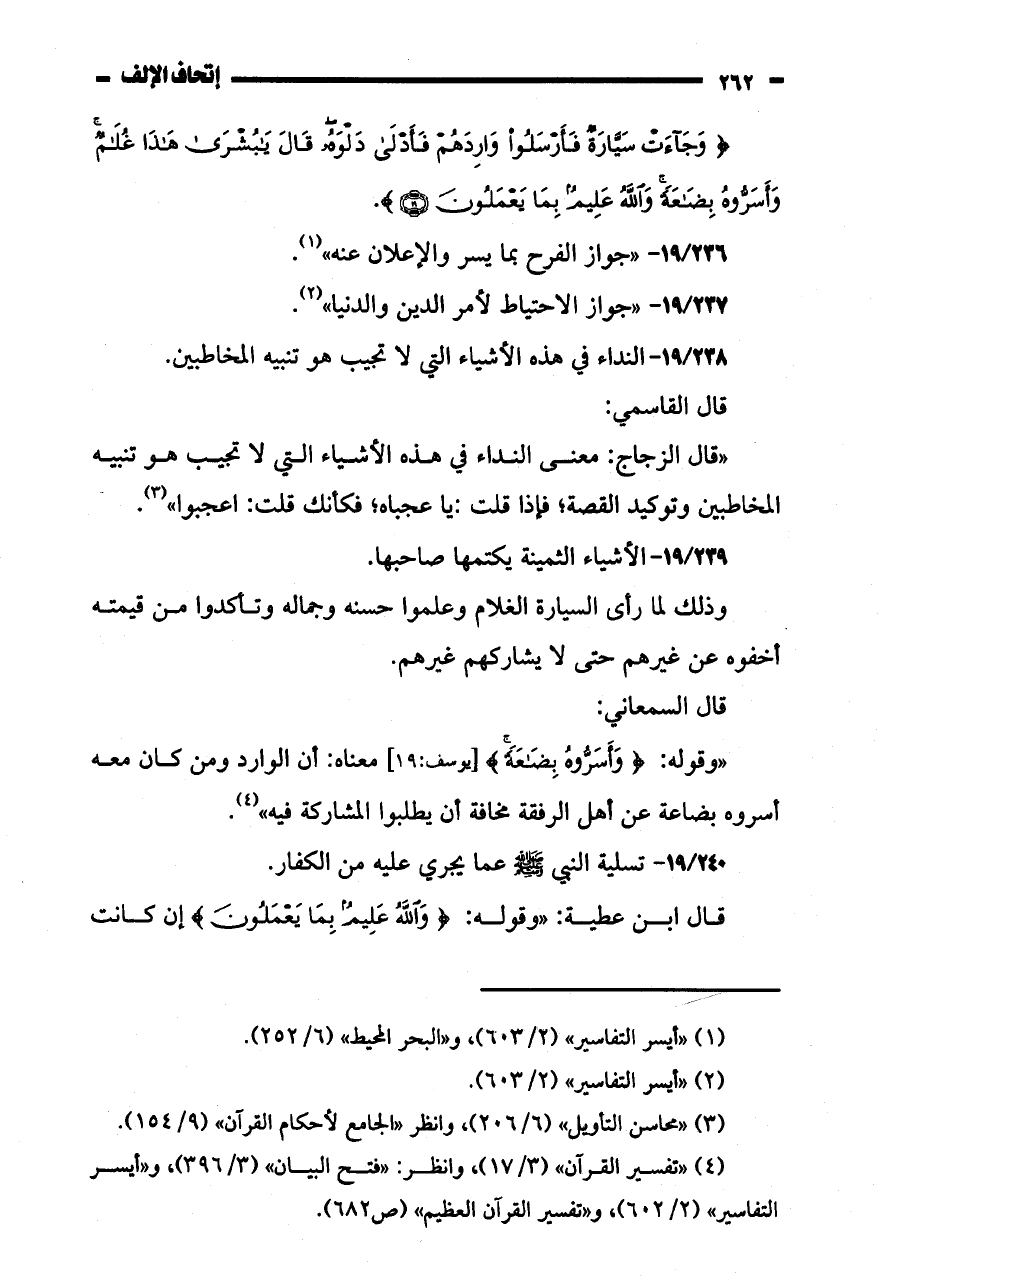 ٢٦٢ إتحاف الإلف
﴿ وَجَآءَتْ سَيَّارَةٌ فَأَرْسَلُوا۟ وَارِدَهُمْ فَأَدْلَىٰ دَلْوَهُۥ ۖ قَالَ يَـٰبُشْرَىٰ هَـٰذَا غُلَـٰمٌ ۚ
وَأَسَرُّوهُ بِضَـٰعَةً ۚ وَٱللَّهُ عَلِيمٌۢ بِمَا يَعْمَلُونَ ﴿١٩﴾ ﴾.
١٩/٢٣٦- «جواز الفرح بما يسر والإعلان عنه»(١).
١٩/٢٣٧- «جواز الاحتياط لأمر الدين والدنيا»(٢).
١٩/٢٣٨- النداء في هذه الأشياء التي لا تجيب هو تنبيه المخاطبين.
قال القاسمي:
«قال الزجاج: معنى النداء في هذه الأشياء التي لا تجيب هو تنبيه
المخاطبين وتوكيد القصة؛ فإذا قلت :يا عجباه؛ فكأنك قلت: اعجبوا»(٣).
١٩/٢٣٩- الأشياء الثمينة يكتمها صاحبها.
وذلك لما رأى السيارة الغلام وعلموا حسنه وجماله وتأكدوا من قيمته
أخفوه عن غيرهم حتى لا يشاركهم غيرهم.
قال السمعاني:
«وقوله: ﴿ وَأَسَرُّوهُ بِضَـٰعَةً ۚ ﴾ [يوسف:١٩] معناه: أن الوارد ومن كان معه
أسروه بضاعة عن أهل الرفقة مخافة أن يطلبوا المشاركة فيه»(٤).
١٩/٢٤٠- تسلية النبي ﷺ عما يجري عليه من الكفار.
قال ابن عطية: «وقوله: ﴿ وَٱللَّهُ عَلِيمٌۢ بِمَا يَعْمَلُونَ ﴾ إن كانت
(١) «أيسر التفاسير» (٢/ ٦٠٣)، و«البحر المحيط» (٦/ ٢٥٢).
(٢) «أيسر التفاسير» (٢/ ٦٠٣).
(٣) «محاسن التأويل» (٦/ ٢٠٦)، وانظر «الجامع لأحكام القرآن» (٩/ ١٥٤).
(٤) «تفسير القرآن» (٣/ ١٧)، وانظر: «فتح البيان» (٣/ ٣٩٦)، و«أيسر
التفاسير» (٢/ ٦٠٢)، و«تفسير القرآن العظيم» (ص٦٨٢).